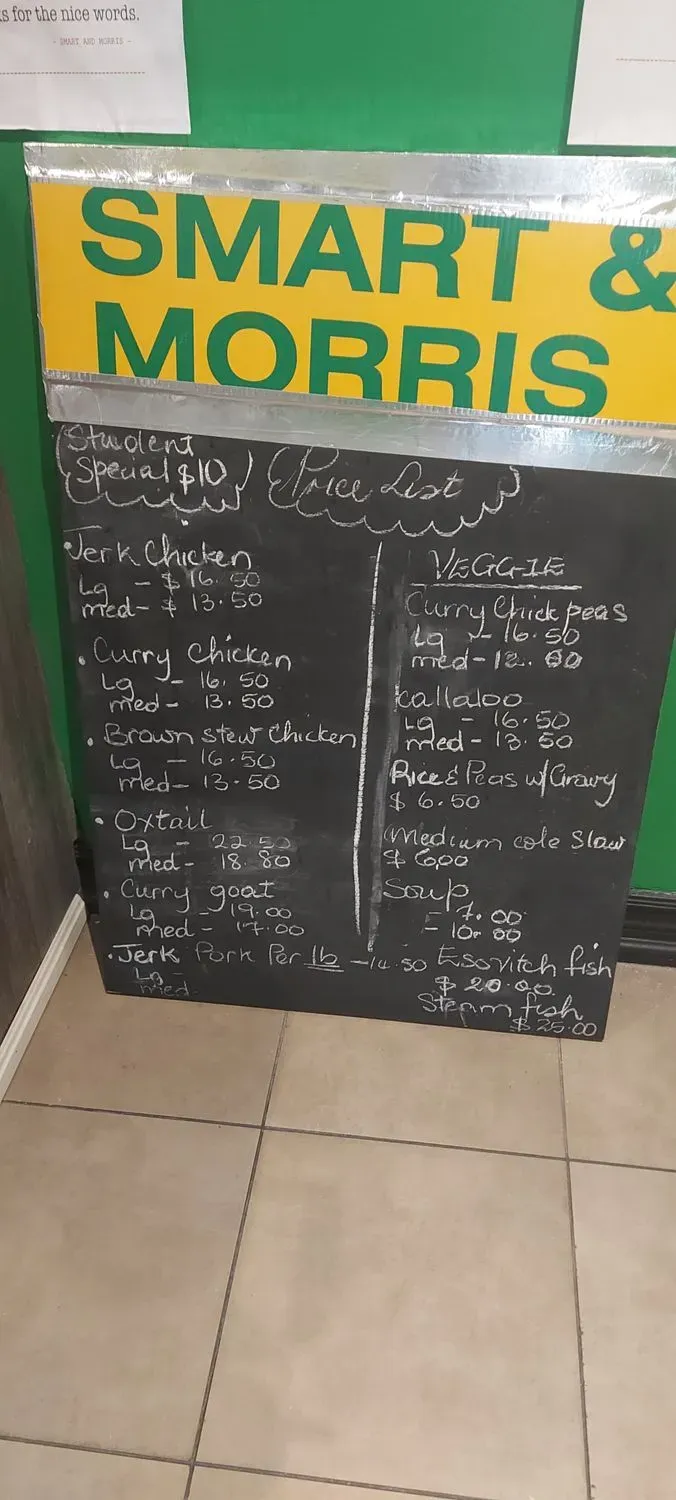 s for the nice words.
- SMART AND MORRIS -
SMART &
MORRIS
Student
Special $10
Price List
Jerk Chicken
Lg - $ 16.50
med - $ 13.50
Curry chicken
Lg - 16.50
med - 13.50
Brown stew Chicken
Lg - 16.50
med - 13.50
Oxtail
Lg - 22.50
med - 18.80
Curry goat
Lg - 19.00
med - 17.00
Jerk Pork Per lb - 14.50
Lg -
med
VEGGIE
Curry Chick peas
Lg - 16.50
med - 12.00
callaloo
Lg - 16.50
med - 13.50
Rice & Peas w/ Gravy
$ 6.50
Medium cole Slaw
$ 6,00
Soup
- 7.00
- 10.00
Esovitch fish
$ 20.00
Steam fish
$ 25.00